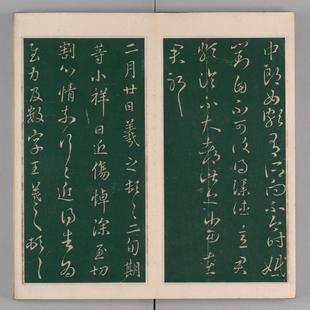 中郎女頗有所向不今時婚
對自不可復得僕往意君
頗論不大都此亦當在
君耶
二月廿日羲之頓首二旬期
等小祥日近傷悼深至切
割心情奈何奈何近得書為
慰力及數字王羲之頓首